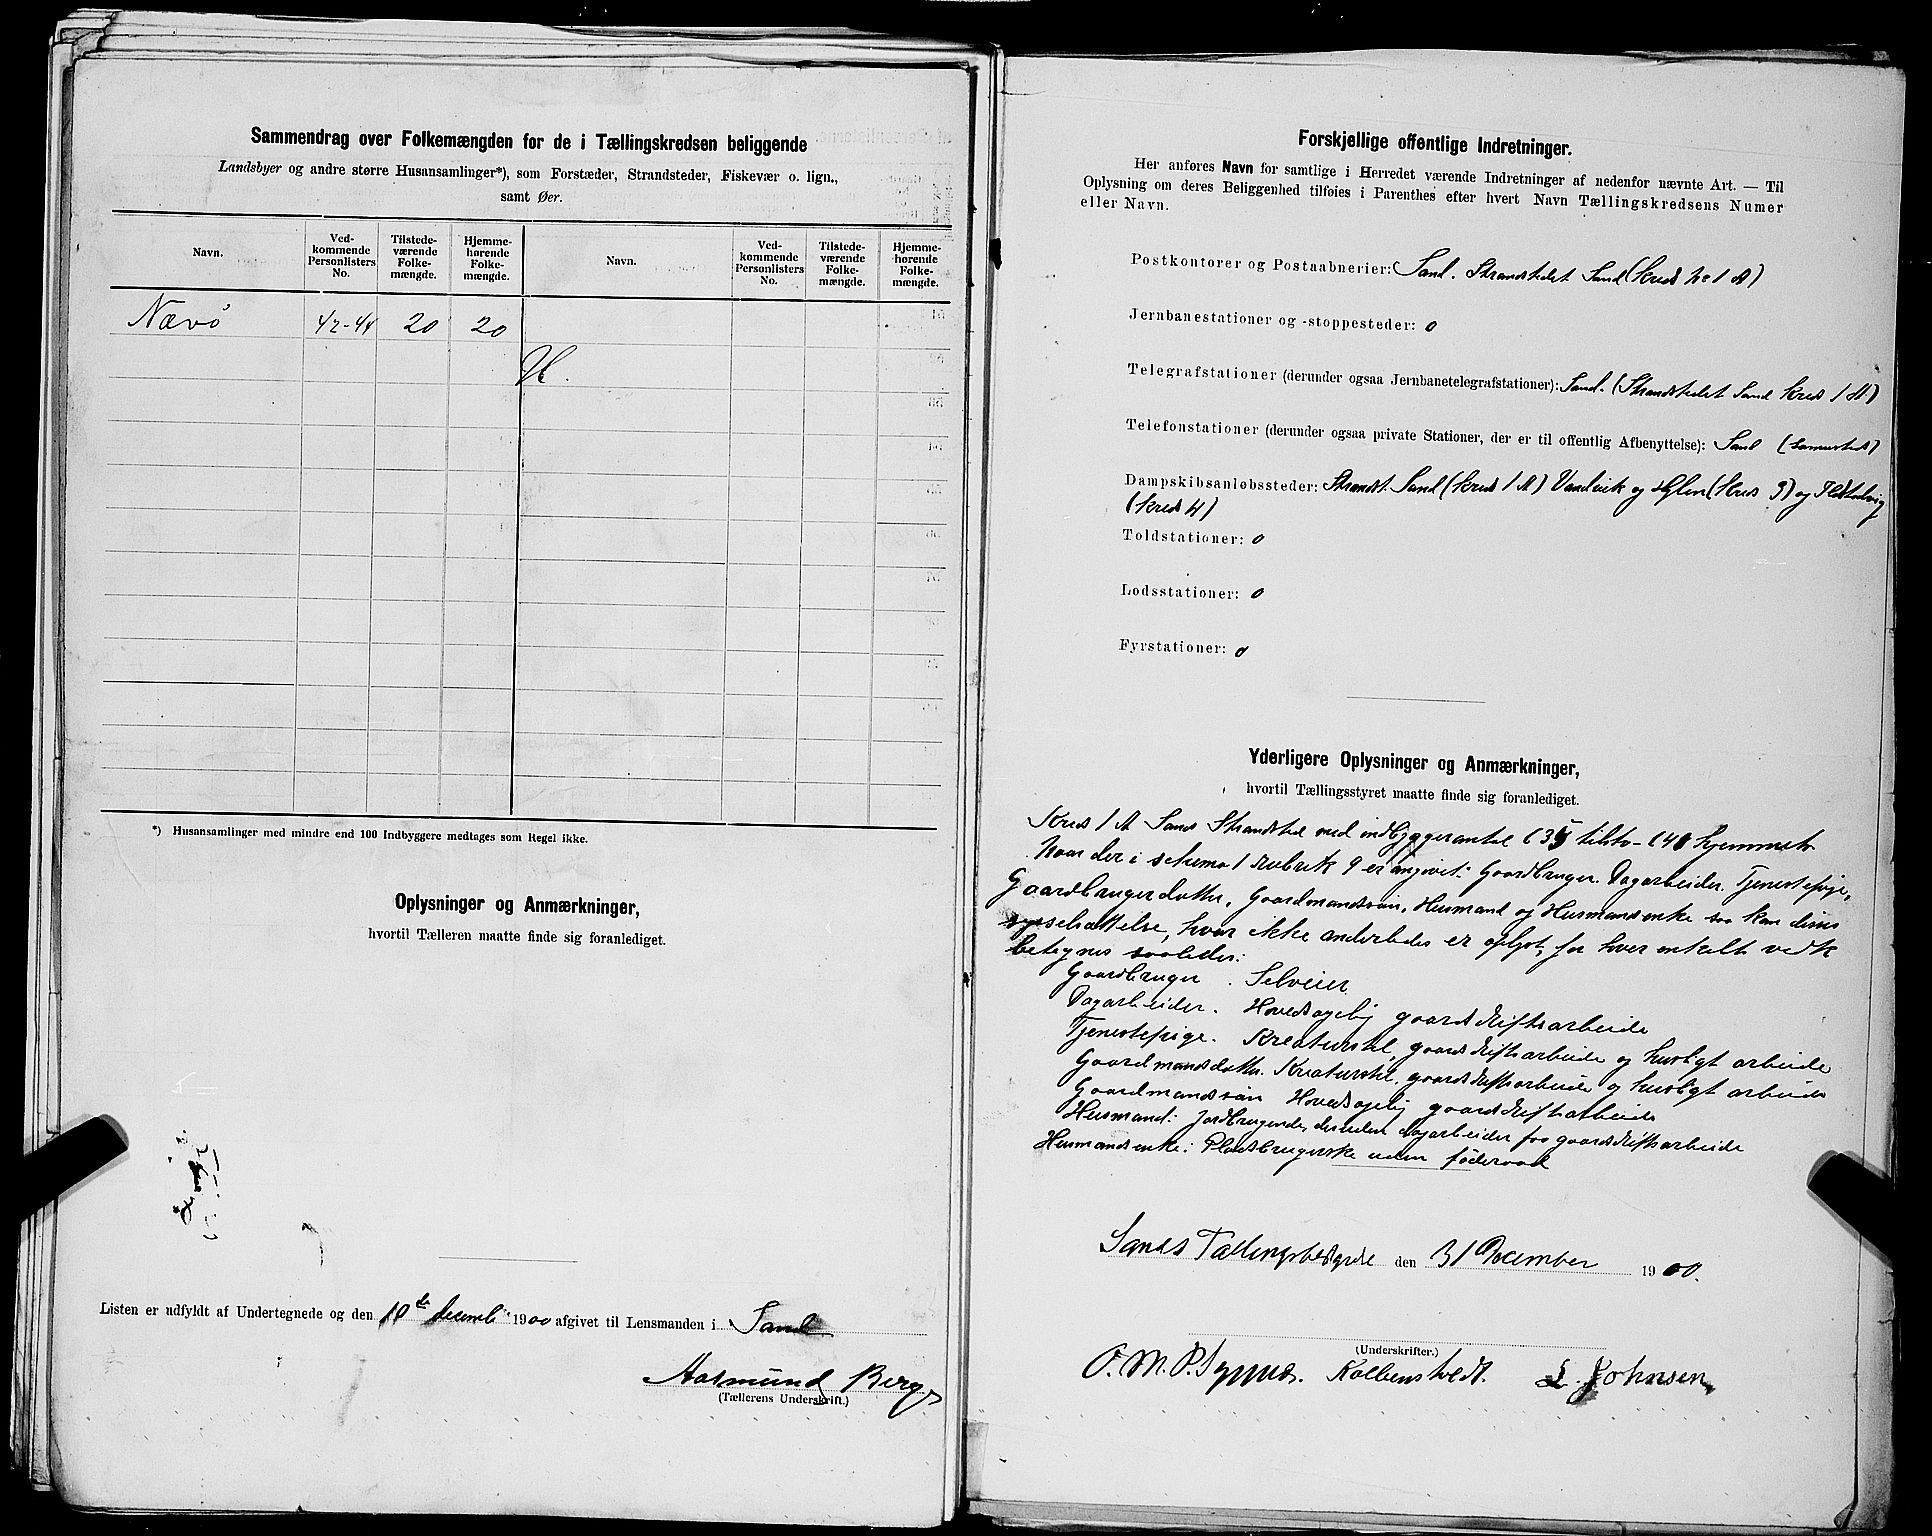 Sammendrag over Folkemængden for de i Tællingskredsen beliggende
Landsbyer og andre større Husansamlinger*), som Forstæder, Strandsteder, Fiskevær o. lign.,
samt Øer.
Navn.
Ved-
kommende
Personlisters
No.
Tilstede-
værende
Folke-
mængde.
Hjemme-
hørende
Folke-
mængde.
Navn.
Ved-
kommende
Personlisters
No.
Tilstede-
værende
Folke-
mængde.
Hjemme-
hørende
Folke-
mængde.
Nævø 42-44 20 20
*) Husansamlinger med mindre end 100 Indbyggere medtages som Regel ikke.
Oplysninger og Anmærkninger,
hvortil Tælleren maatte finde sig foranlediget.
Listen er udfyldt af Undertegnede og den 10de decemb 1900 afgivet til Lensmanden i Sand
Aasmund Berge
(Tællerens Underskrift.)
Forskjellige offentlige Indretninger.
Her anføres Navn for samtlige i Herredet værende Indretninger af nedenfor nævnte Art. — Til
Oplysning om deres Beliggenhed tilføies i Parenthes efter hvert Navn Tællingskredsens Numer
eller Navn.
Postkontorer og Postaabnerier: Sand. Strandstedet Sand (Kreds No 1 A)
Jernbanestationer og -stoppesteder: 0
Telegrafstationer (derunder ogsaa Jernbanetelegrafstationer): Sand. (Strandstedet Sand Kreds 1 A)
Telefonstationer (derunder ogsaa private Stationer, der er til offentlig Afbenyttelse): Sand (sammesteds)
Dampskibsanløbssteder: Strandst. Sand (Kreds 1 A) Vandvik og Hylen (Kreds 3) og
(Kreds 4)
Toldstationer: 0
Lodsstationer: 0
Fyrstationer: 0
Yderligere Oplysninger og Anmærkninger,
hvortil Tællingsstyret maatte finde sig foranlediget.
Kreds 1 A Sands Strandsted med indbyggerantal hjemmeh
Naar der i schema 1 rubrik 9 er angivet: Gaardbruger. Dagarbeider. Tjenestepige,
Gaardbrugerdatter, Gaardmandssøn, Husmand og Husmandsenke saa kan deres
sysselsættelse, hvor ikke anderledes er oplyst, for hver enkelt vedk
betegnes saaledes:
Gaardbruger. Selveier
Dagarbeider. Hovedsagelig gaardsdriftsarbeide
Tjenestepige. Kreaturstel, gaardsdriftsarbeide og husligt arbeide
Gaardmandsdatter. Kreaturstel, gaardsdriftsarbeide og husligt arbeide
Gaardmandssøn Hovedsagelig gaardsdriftsarbeide
Husmand: Jordbrugende, desuden dagarbeider paa gaardsdriftsarbeide
Husmandsenke: Pladsbrugerske uden føderaad
Sands Tællingsbestyrelse den 31 December 1900.
(Underskrifter.)
O. M. P. Kolbenstvedt. L. Johnsen